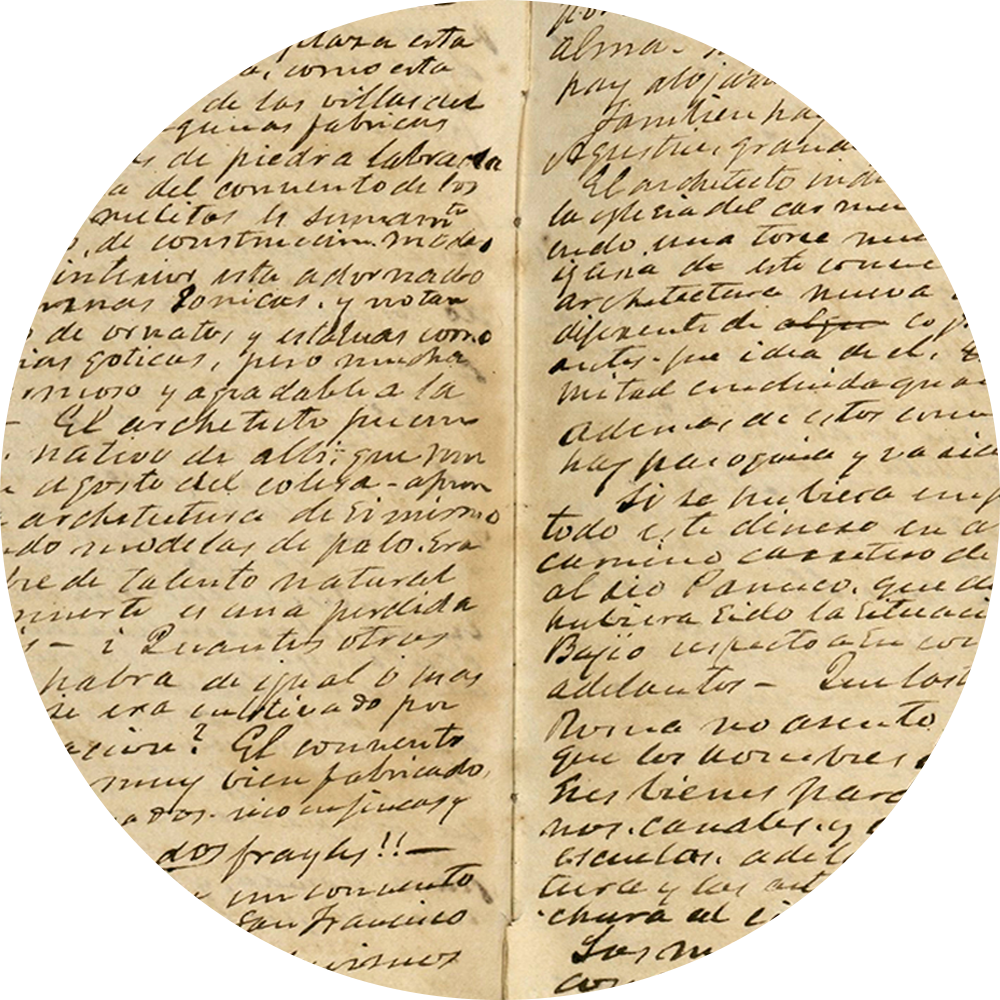 plaza esta
a, como esta
de las villas del
gunas fabricas
s de piedra labrada
a del convento de los
melitos
de construccion. mode
interior esta adornado
Ionicas. y notan
de ornatos y estatuas como
ias goticas, pero mucha
y agradable a la
El archetecto fue un
nativo de alli, que
architectura de si mismo
do modelas de palo. Era
bre de talento natural
muerte es una perdida
s – ¿ Quantos otros
habra de igual o mas
se era cultivado por
acion? El convento
muy bien fabricado,
ados. rico en fincas y
dos frayles!! —
un convento
San Francisco
alma.
hay aloja
Tambien hay
Agustin, grand
El architecto
la iglesia del carme
endo una torre
iglesia de este conve
architectura nueva
diferente de cop
antes. fue idea de el.
mitad concluida
ademas de estos conve
hay paroquia y varia
Si se hubiera emp
todo este dinero en
camino carretero de
al rio Panuco. que
hubiera sido la situaci
Bajio respecto a su con
adelantos – En las
Roma no
que los hombres
sus bienes para
nos. canales. y
escuelas. adel
tura y las
chura al
Los